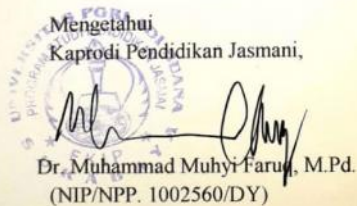 Mengetahui
Kaprodi Pendidikan Jasmani,
Dr. Muhammad Muhyi Faruq, M.Pd.
(NIP/NPP. 1002560/DY)